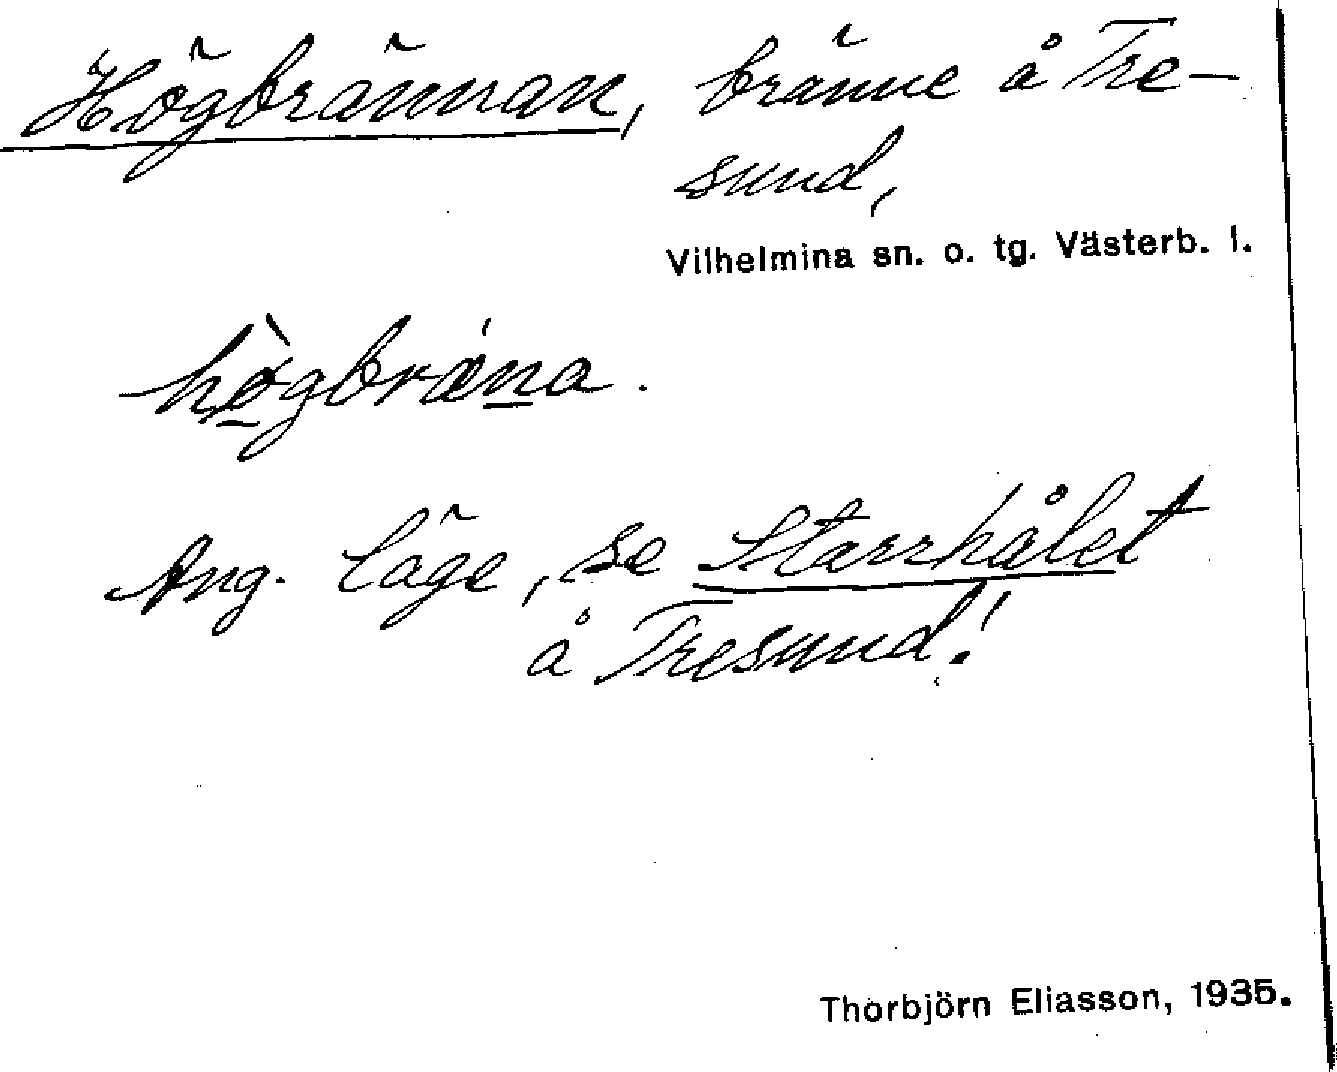 Högbrännan, bränne å Tre-
sund,
Vilhelmina sn. o. tg. Västerb. l.
hö̀gbrǽna.
Ang. läge, se Starrhålet
å Tresund!
Thorbjörn Eliasson, 1935.